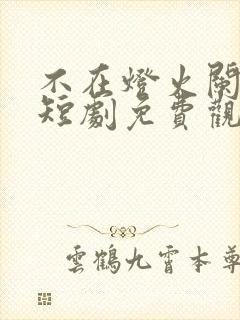 不在燈火闌
短劇免費觀
雲鶴九霄本尊